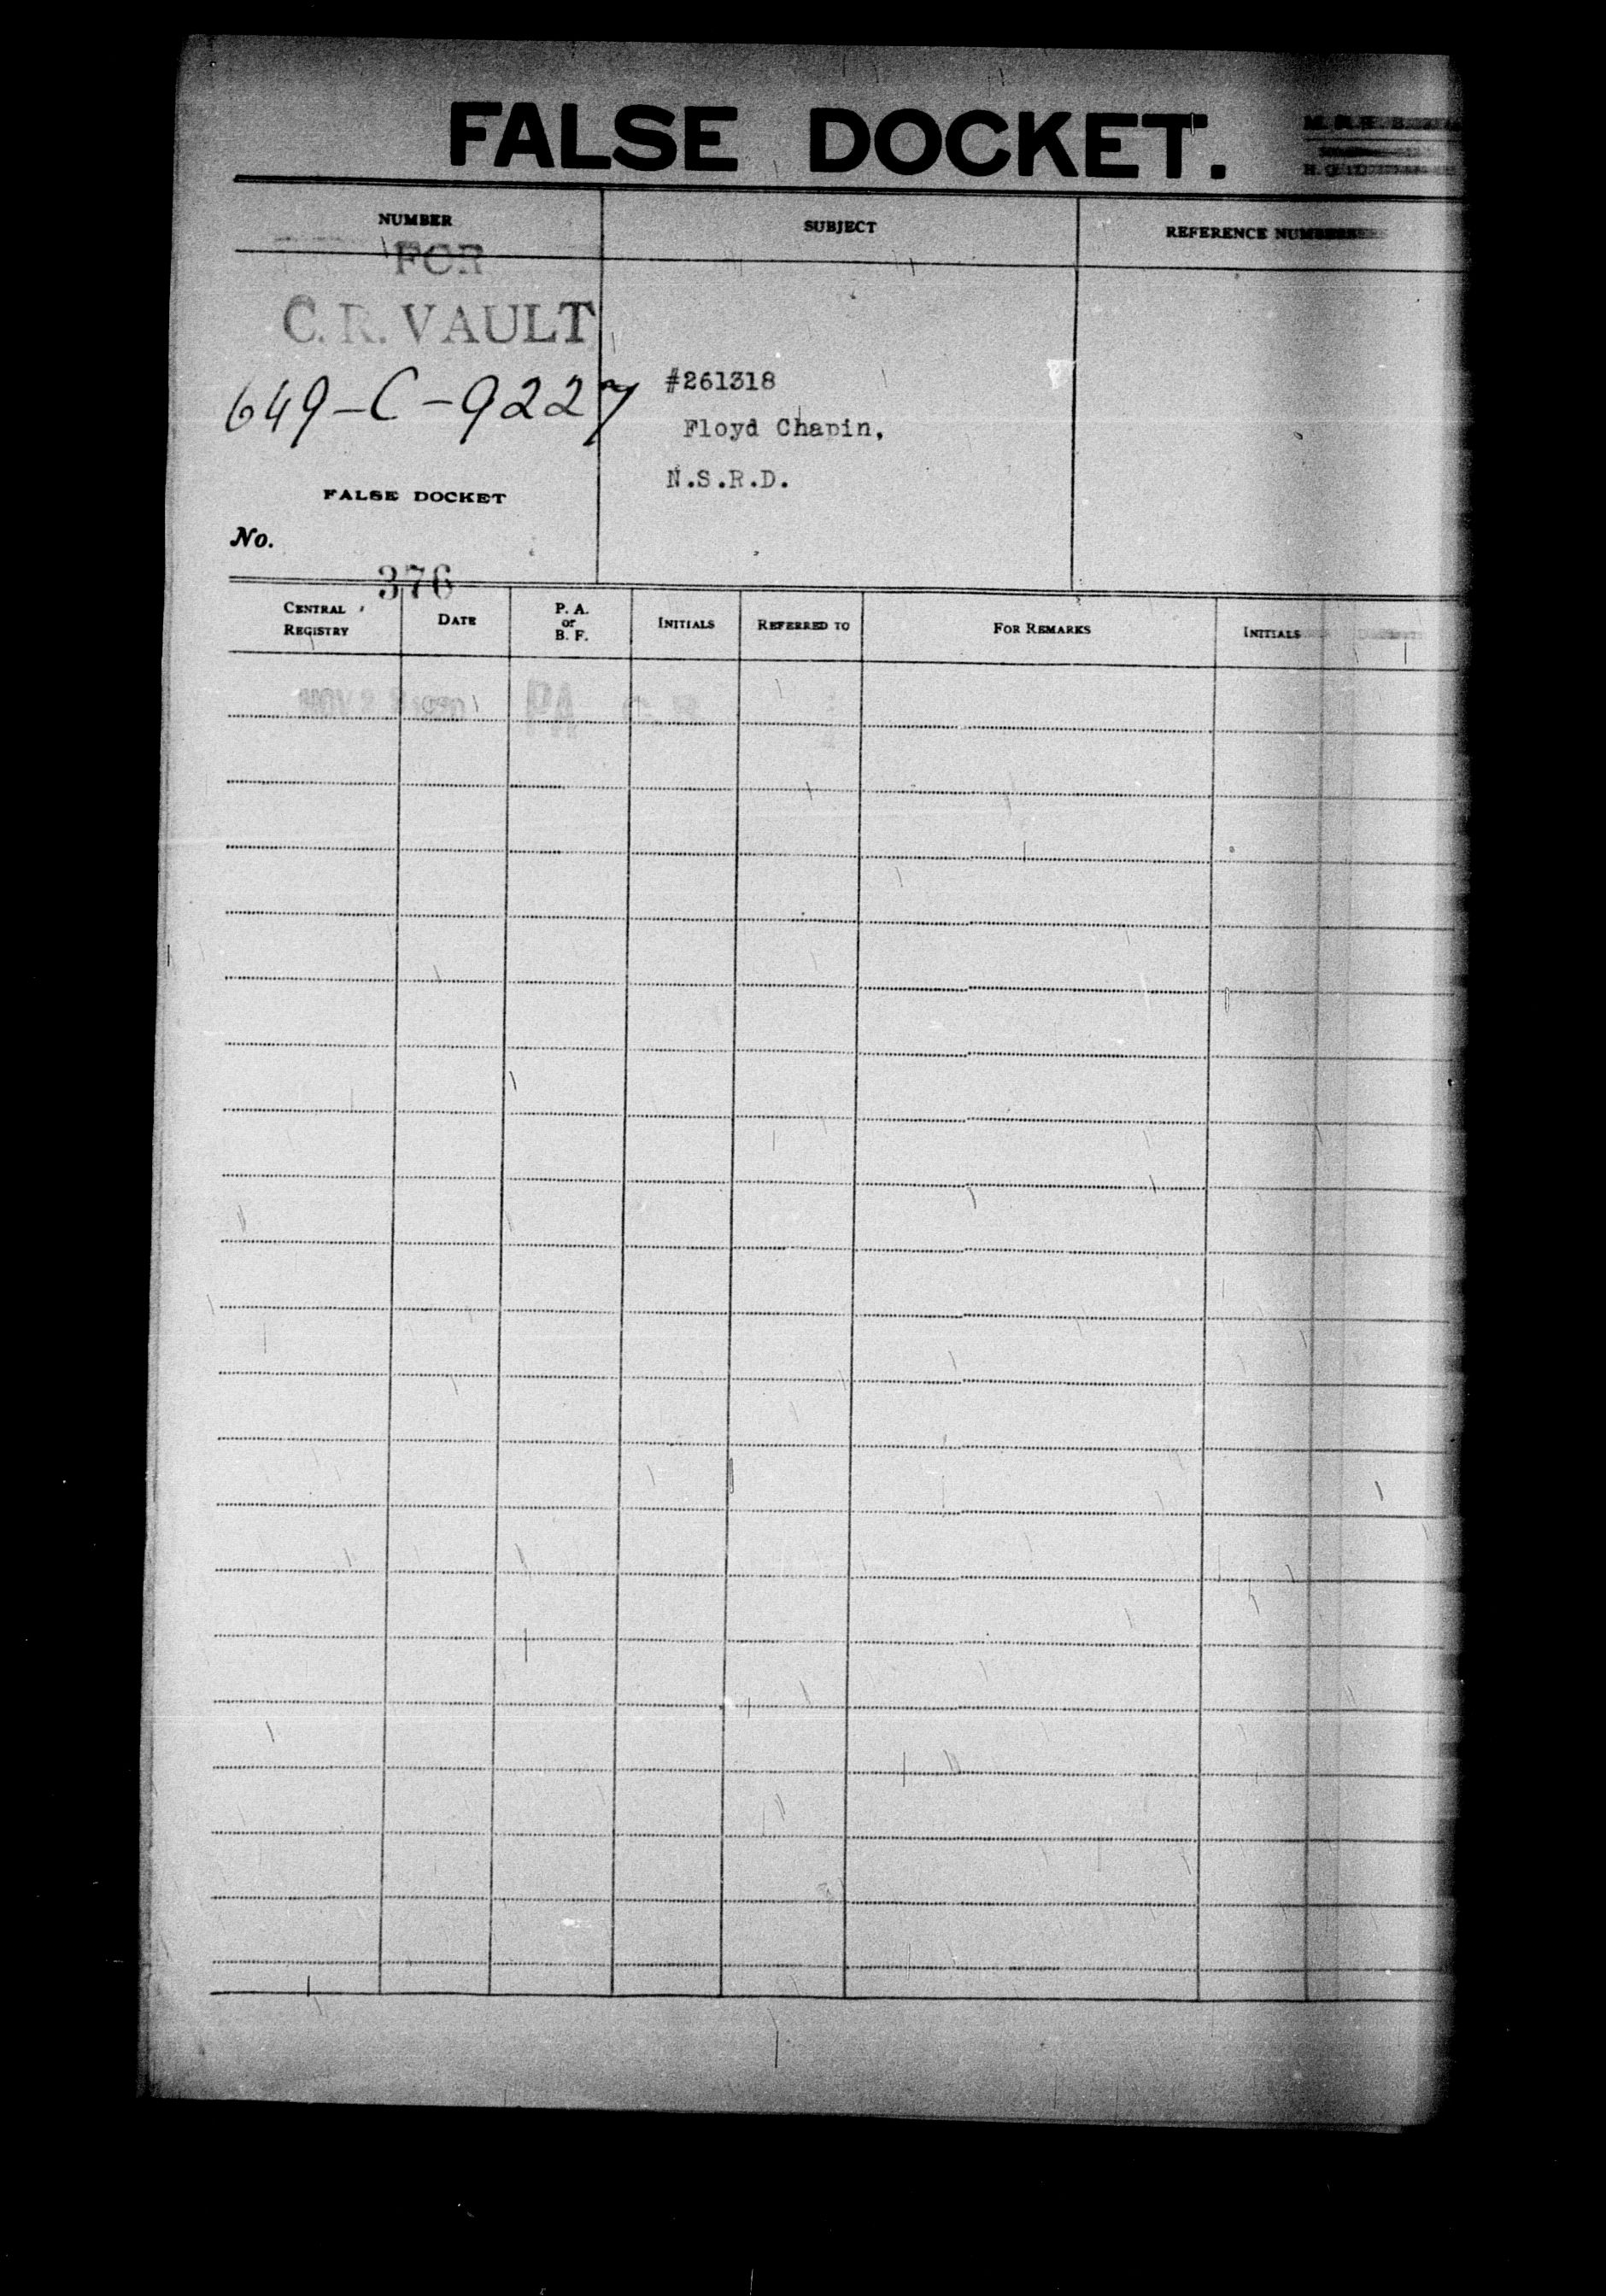 FALSE DOCKET.
NUMBER
SUBJECT
REFERENCE NUMBERS
FOR
C. R. VAULT
649-C-9227
#261318
Floyd Chapin,
N.S.R.D.
FALSE DOCKET
No.
376
CENTRAL REGISTRY
DATE
P. A. or B. F.
INITIALS
REFERRED TO
FOR REMARKS
INITIALS
NOV 2 1920
PA
C. R.